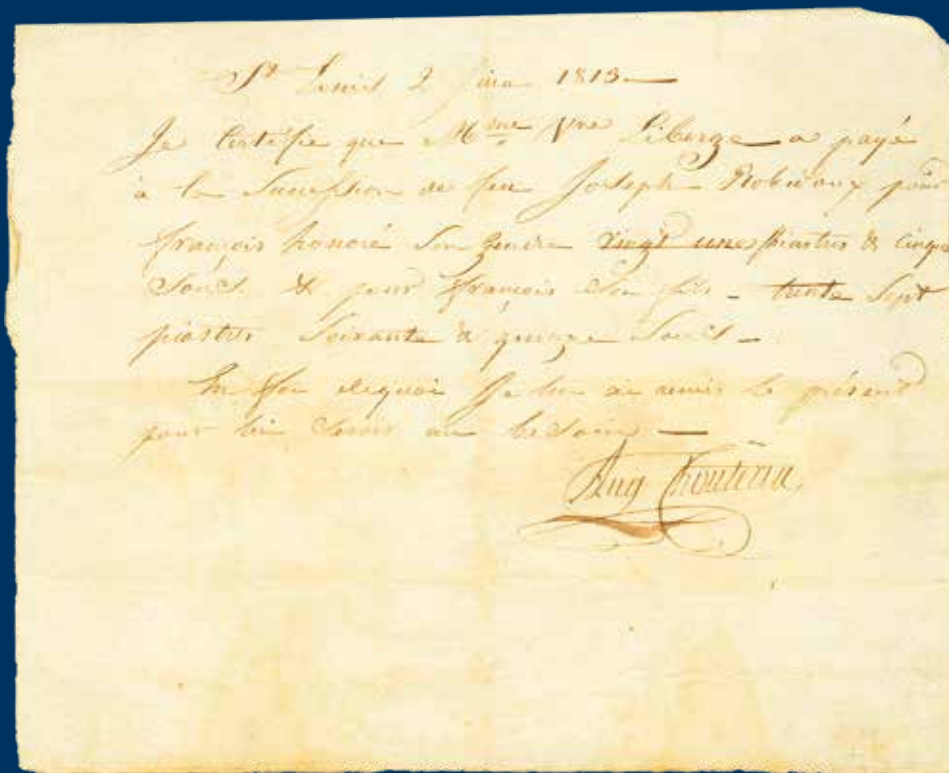 St Louis 2 juin 1813
Je Certifie que Mme Vve Liberge a payé
à la Succession de feu Joseph Robidoux pour
françois honoré Son gendre vingt une piastres & cinq
Sous. & pour françois Son fils - trente Sept
piastres Soixante & quinze Sous -
En foi de quoi Je lui ai remis le présent
pour lui Servir au besoin -
Aug Chouteau